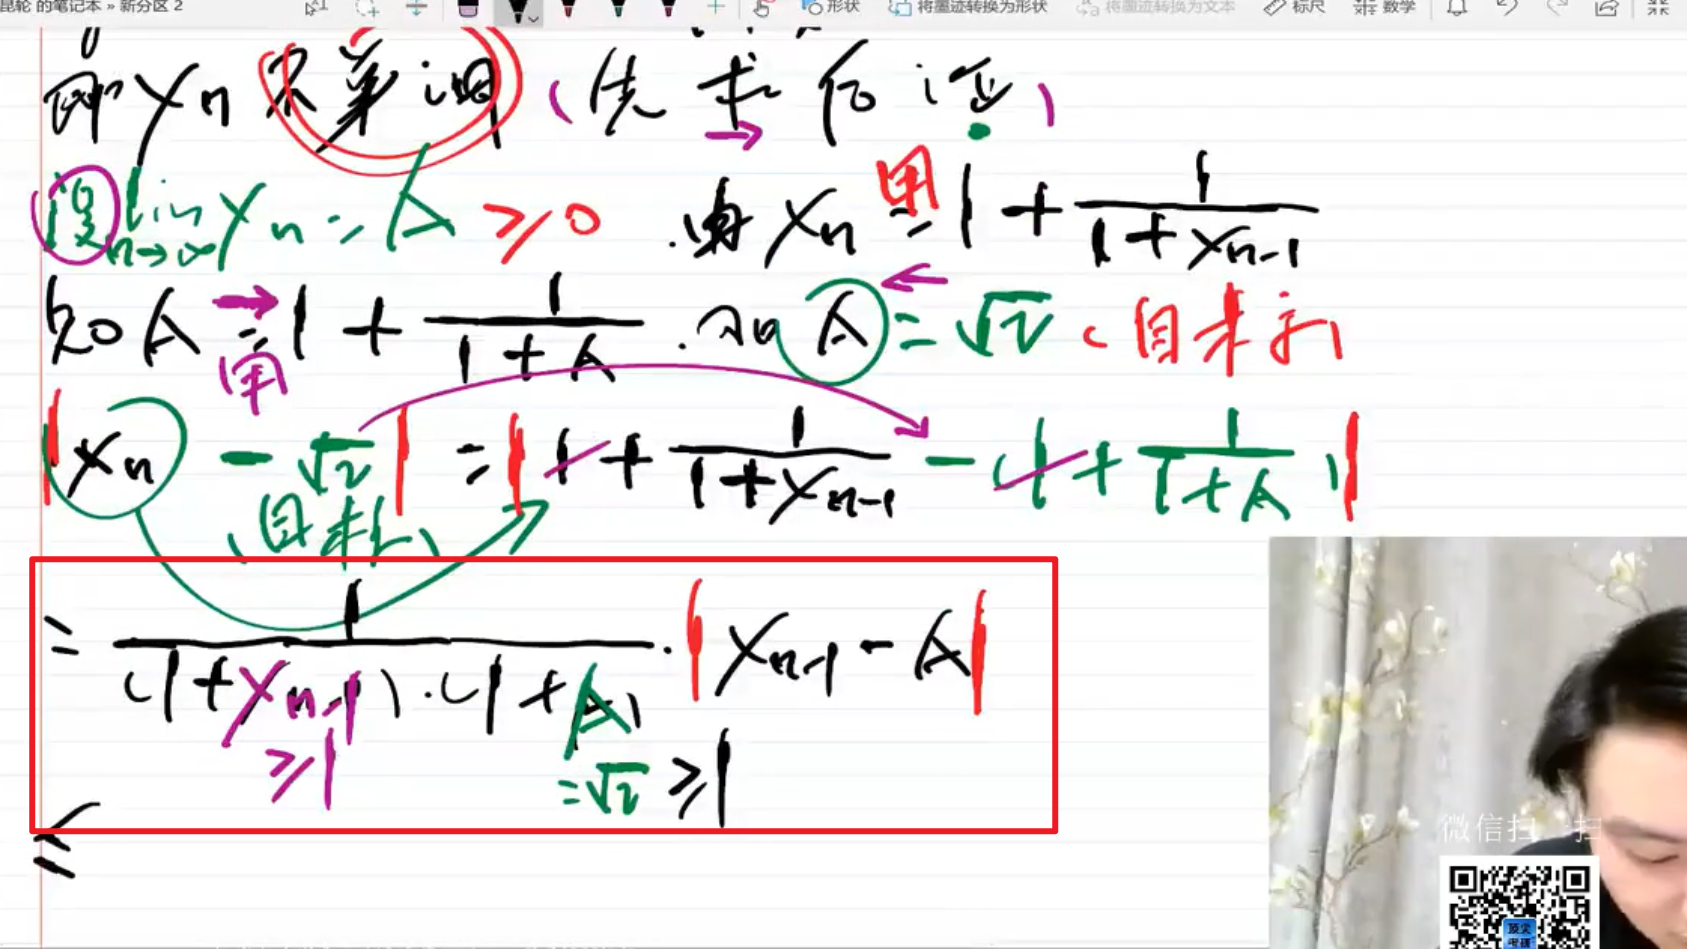 昆轮 的笔记本 » 新分区 2
形状 将墨迹转换为形状 将墨迹转换为文本 标尺 数学
即 Xn 不单调 (先求后证)
设 lim n→∞ Xn = A ≥ 0 . 由 Xn 用= 1 + 1/(1+Xn-1)
知 A = 1 + 1/(1+A) . 知 A = √2 (自来水)
用
|Xn - √2| = |1 + 1/(1+Xn-1) - (1 + 1/(1+A))|
(自来水)
= 1/((1+Xn-1)·(1+A)) · |Xn-1 - A|
≥1 =√2 ≥1
≤
微信扫一扫